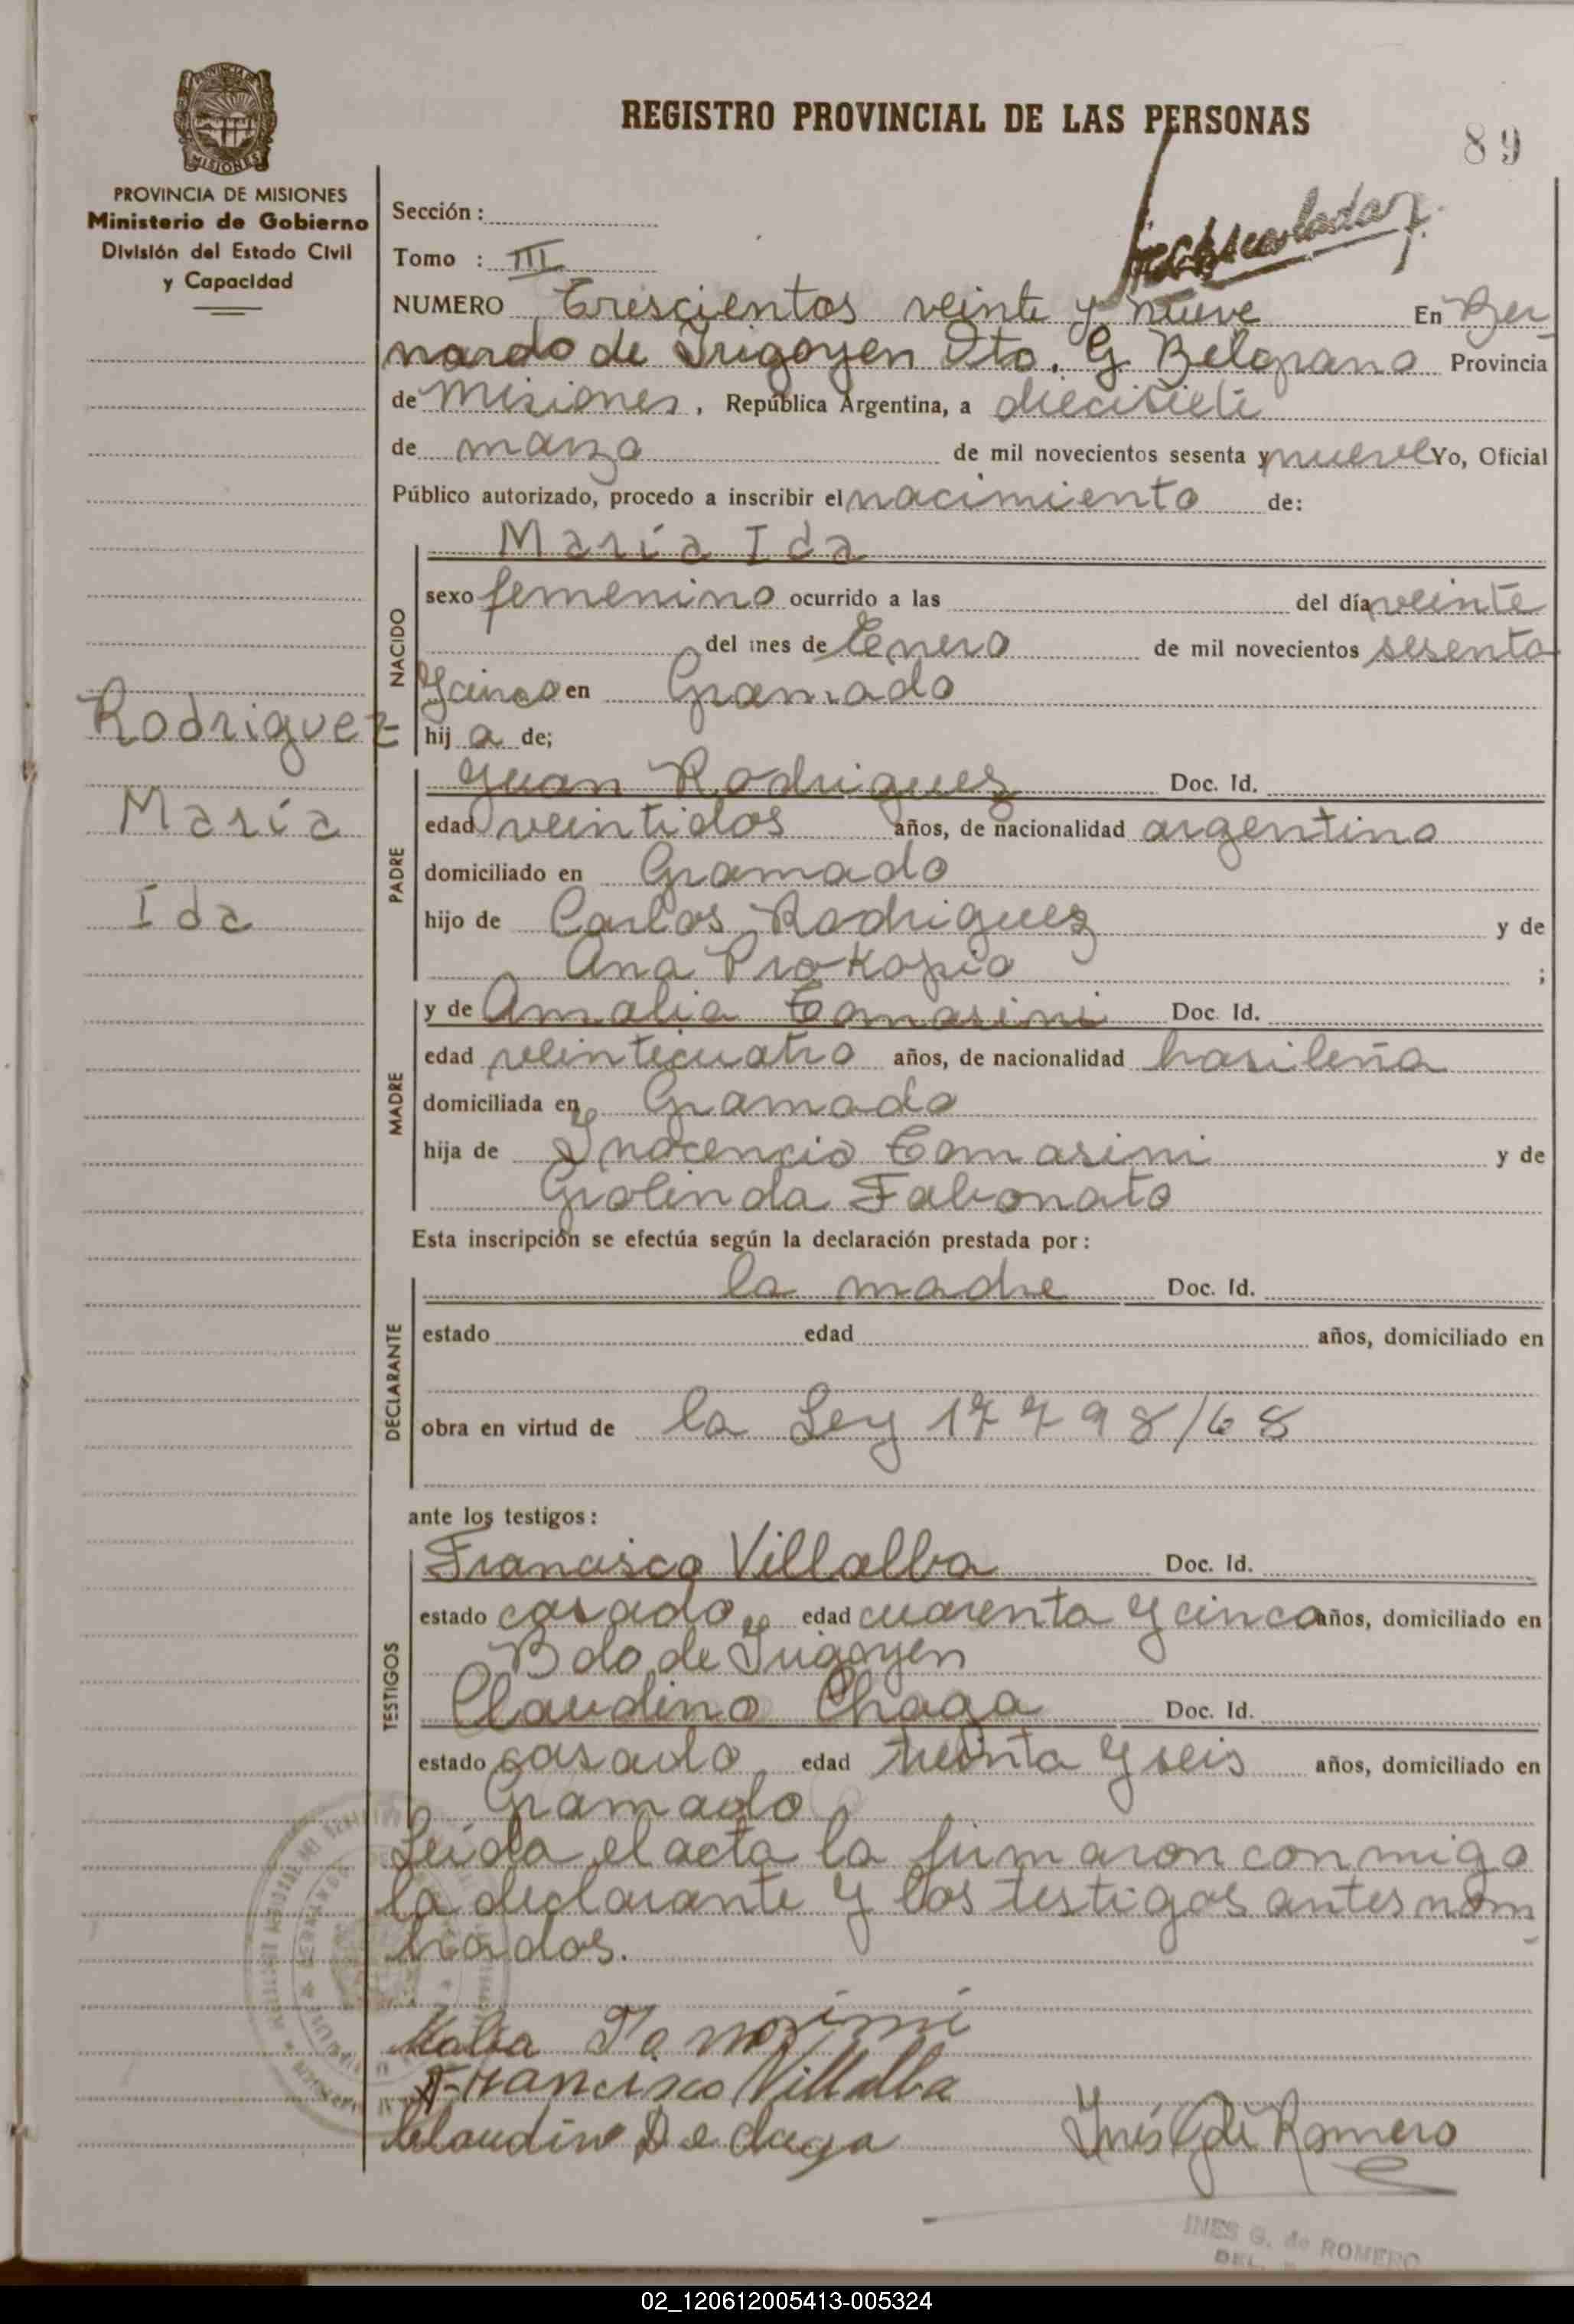 REGISTRO PROVINCIAL DE LAS PERSONAS
89
MISIONES
PROVINCIA DE MISIONES
Ministerio de Gobierno
División del Estado Civil
y Capacidad
Sección :
Tomo : III
NUMERO Trescientos veinte y nueve En Ber
nardo de Irigoyen Dto. G Belgrano Provincia
de Misiones, República Argentina, a diecisiete
de marzo de mil novecientos sesenta y nueve Yo, Oficial
Público autorizado, procedo a inscribir el nacimiento de:
María Ida
NACIDO
sexo femenino ocurrido a las del día veinte
del mes de Enero de mil novecientos sesenta
y cinco en Gramado
hij a de;
Rodriguez
María
Ida
PADRE
Juan Rodriguez Doc. Id.
edad veintidos años, de nacionalidad argentino
domiciliado en Gramado
hijo de Carlos Rodriguez y de
Ana Prokopio ;
MADRE
y de Amalia Tomasini Doc. Id.
edad veinticuatro años, de nacionalidad brasileña
domiciliada en Gramado
hija de Inocencio Tomasini y de
Giolinda Fabonato
Esta inscripción se efectúa según la declaración prestada por:
DECLARANTE
la madre Doc. Id.
estado edad años, domiciliado en
obra en virtud de la Ley 17798/68
ante los testigos:
TESTIGOS
Francisco Villalba Doc. Id.
estado casado edad cuarenta y cinco años, domiciliado en
Bdo de Irigoyen
Claudino Chaga Doc. Id.
estado casado edad treinta y seis años, domiciliado en
Gramado
Leida el acta la firmaron conmigo
la declarante y los testigos antes nom
brados.
Francisco Villalba
Claudino De chaga
Inés G de Romero
INES G. de ROMERO
DEL.
02_120612005413-005324